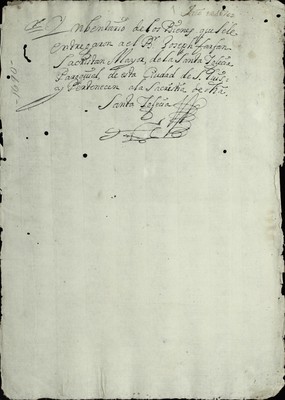 Ynbentario de los Bienes que Se le
entregaron a el Br. Joseph
Sacristan Mayor de la Santa Iglecia
Parroquial de esta Ciudad de S. Luis
y Pertenecen a la Sacristia de dha.
Santa Iglecia